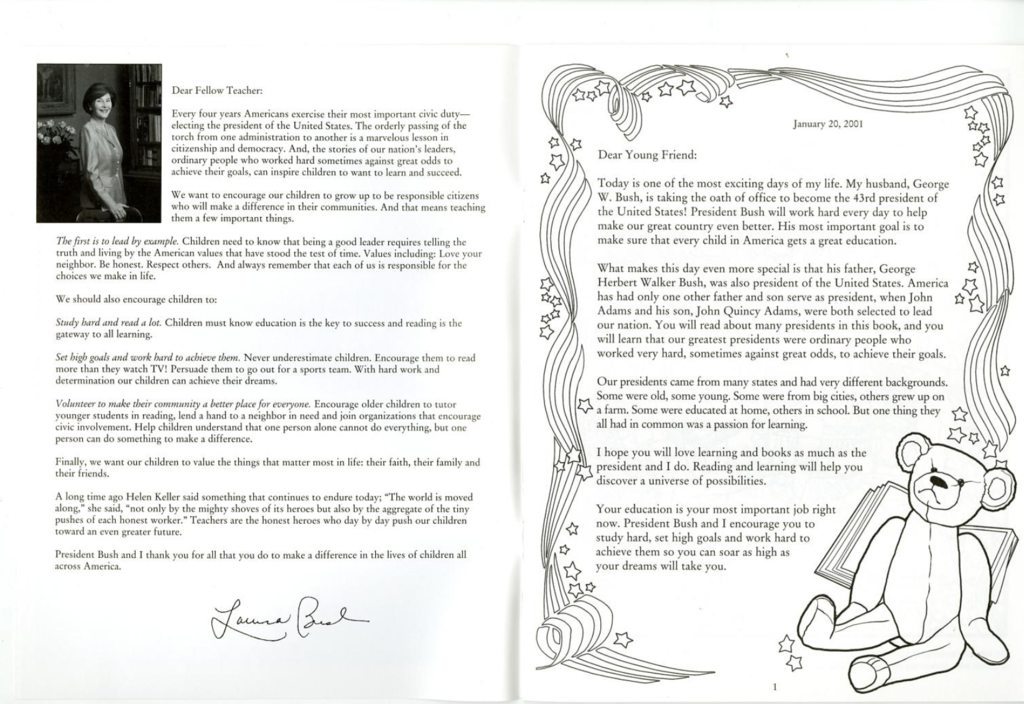 Dear Fellow Teacher:
Every four years Americans exercise their most important civic duty—
electing the president of the United States. The orderly passing of the
torch from one administration to another is a marvelous lesson in
citizenship and democracy. And, the stories of our nation's leaders,
ordinary people who worked hard sometimes against great odds to
achieve their goals, can inspire children to want to learn and succeed.
We want to encourage our children to grow up to be responsible citizens
who will make a difference in their communities. And that means teaching
them a few important things.
The first is to lead by example. Children need to know that being a good leader requires telling the
truth and living by the American values that have stood the test of time. Values including: Love your
neighbor. Be honest. Respect others. And always remember that each of us is responsible for the
choices we make in life.
We should also encourage children to:
Study hard and read a lot. Children must know education is the key to success and reading is the
gateway to all learning.
Set high goals and work hard to achieve them. Never underestimate children. Encourage them to read
more than they watch TV! Persuade them to go out for a sports team. With hard work and
determination our children can achieve their dreams.
Volunteer to make their community a better place for everyone. Encourage older children to tutor
younger students in reading, lend a hand to a neighbor in need and join organizations that encourage
civic involvement. Help children understand that one person alone cannot do everything, but one
person can do something to make a difference.
Finally, we want our children to value the things that matter most in life: their faith, their family and
their friends.
A long time ago Helen Keller said something that continues to endure today; "The world is moved
along," she said, "not only by the mighty shoves of its heroes but also by the aggregate of the tiny
pushes of each honest worker." Teachers are the honest heroes who day by day push our children
toward an even greater future.
President Bush and I thank you for all that you do to make a difference in the lives of children all
across America.
Laura Bush
January 20, 2001
Dear Young Friend:
Today is one of the most exciting days of my life. My husband, George
W. Bush, is taking the oath of office to become the 43rd president of
the United States! President Bush will work hard every day to help
make our great country even better. His most important goal is to
make sure that every child in America gets a great education.
What makes this day even more special is that his father, George
Herbert Walker Bush, was also president of the United States. America
has had only one other father and son serve as president, when John
Adams and his son, John Quincy Adams, were both selected to lead
our nation. You will read about many presidents in this book, and you
will learn that our greatest presidents were ordinary people who
worked very hard, sometimes against great odds, to achieve their goals.
Our presidents came from many states and had very different backgrounds.
Some were old, some young. Some were from big cities, others grew up on
a farm. Some were educated at home, others in school. But one thing they
all had in common was a passion for learning.
I hope you will love learning and books as much as the
president and I do. Reading and learning will help you
discover a universe of possibilities.
Your education is your most important job right
now. President Bush and I encourage you to
study hard, set high goals and work hard to
achieve them so you can soar as high as
your dreams will take you.
1